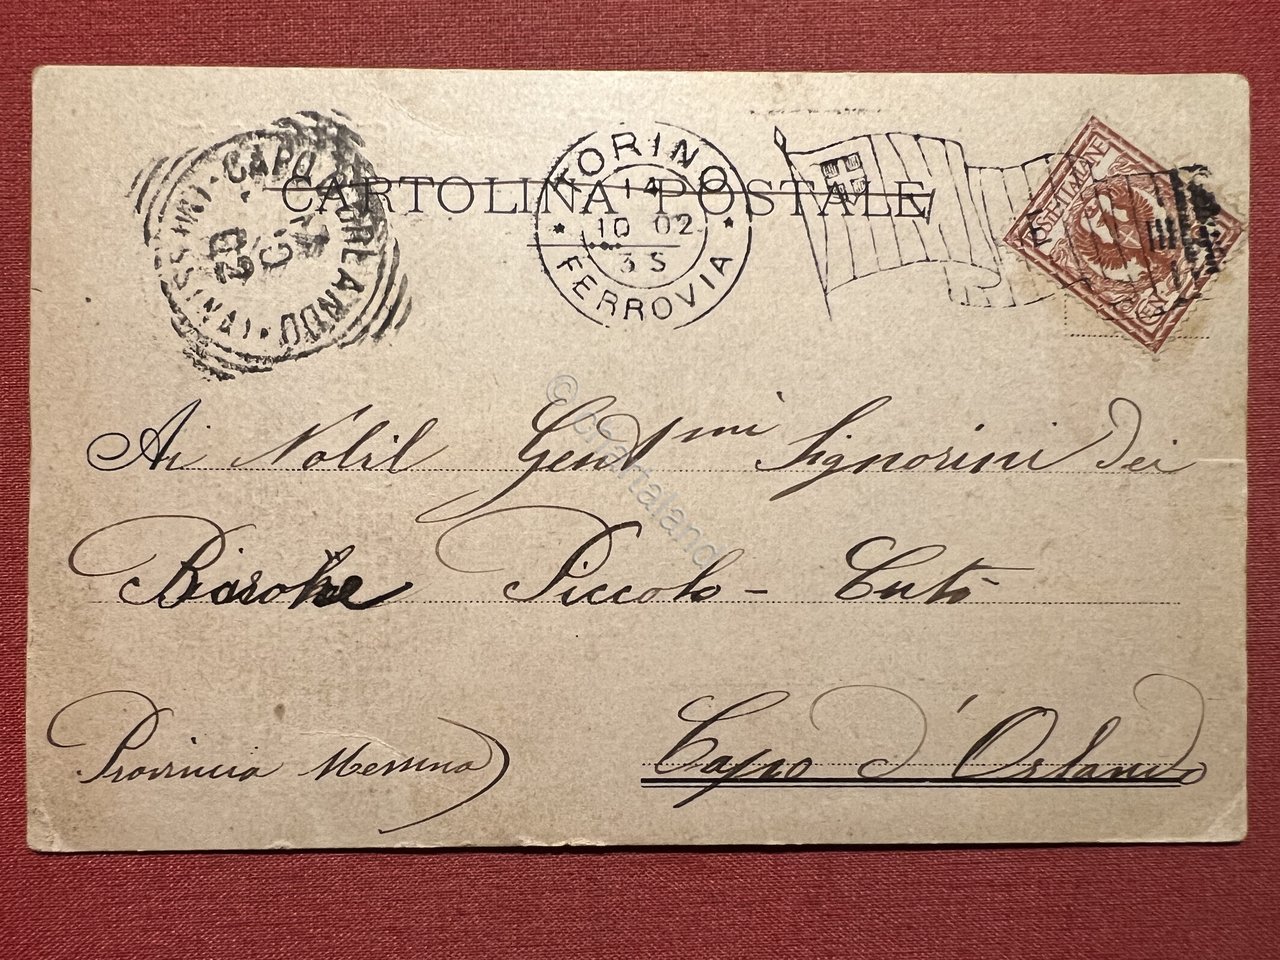 CARTOLINA POSTALE
CAPO D'ORLANDO (MESSINA)
02
TORINO
14
10 02
3 S
FERROVIA
POSTE ITALIANE
© cartaland
Ai Nobil Gent.mi Signorini dei
Barone Piccolo - Cutò
Provincia Messina)
Capo d'Orlando